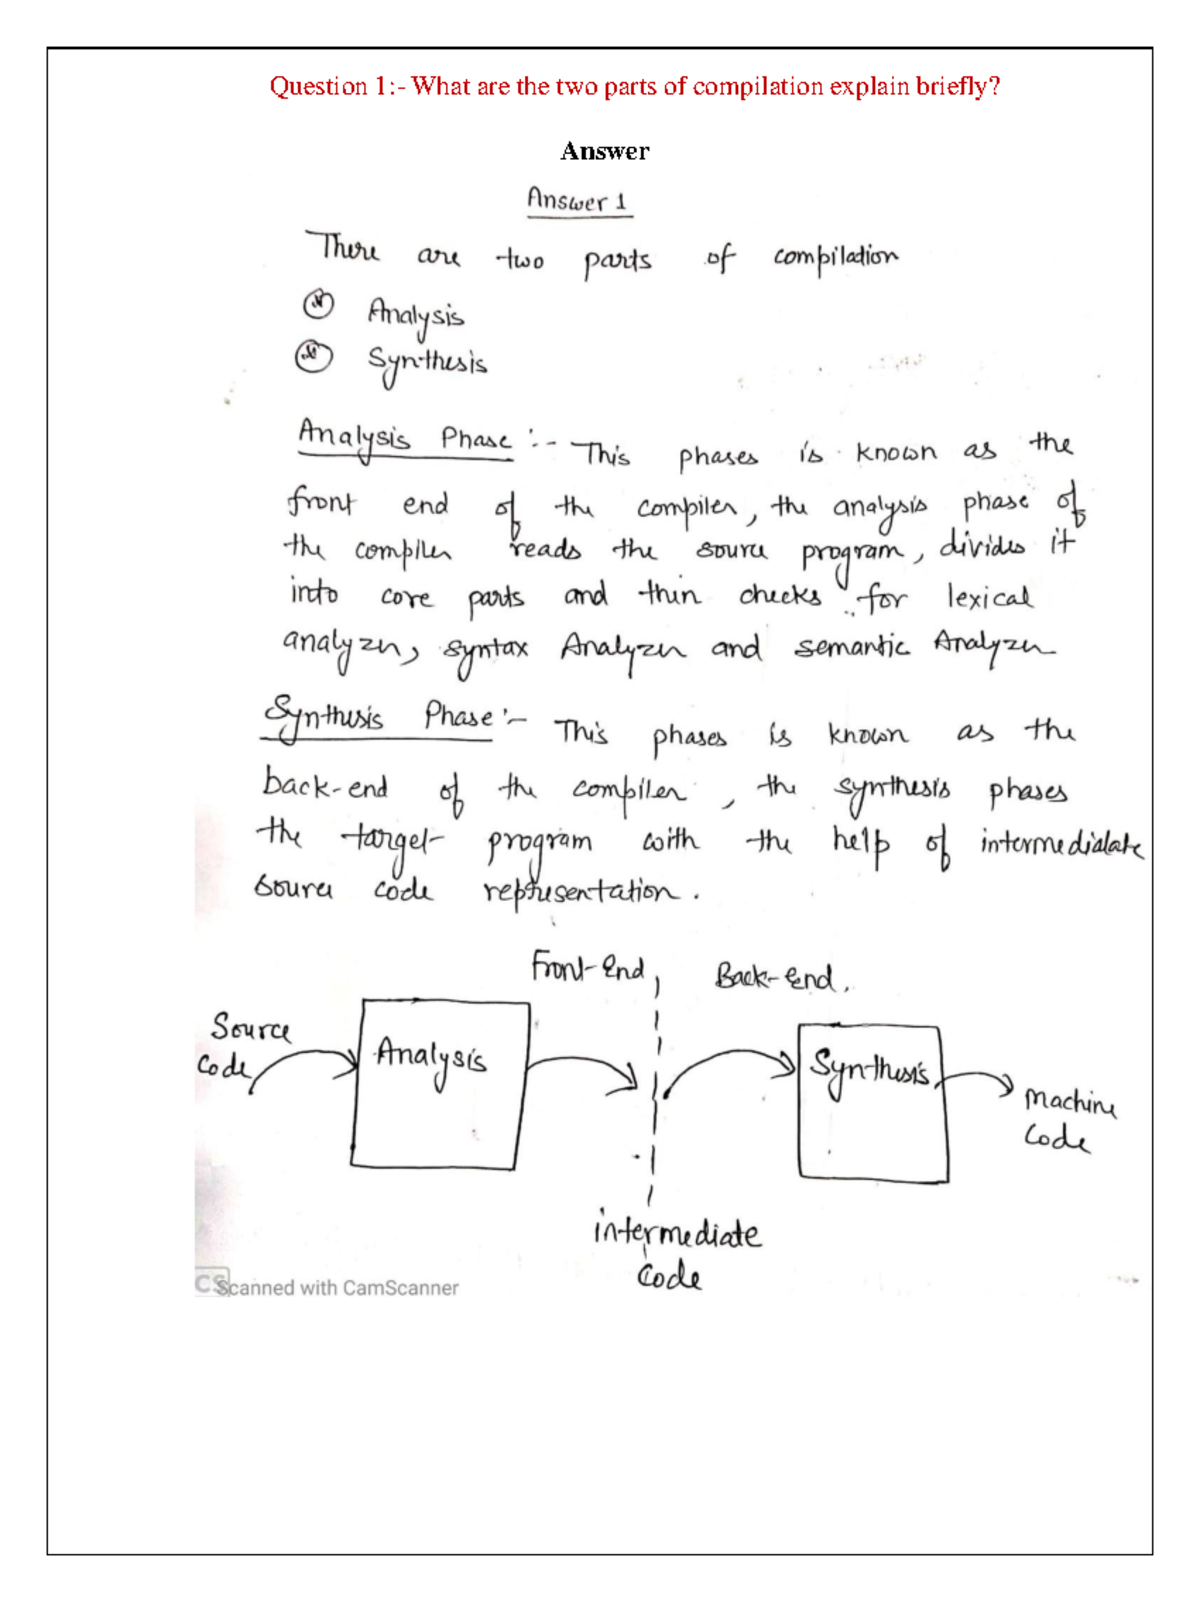 Question 1:- What are the two parts of compilation explain briefly?
Answer
Answer 1
There are two parts of compilation
Analysis
Synthesis
Analysis Phase :- This phases is known as the
front end of the compiler, the analysis phase of
the compiler reads the source program, divides it
into core parts and thin checks for lexical
analyzer, syntax Analyzer and semantic Analyzer
Synthesis Phase :- This phases is known as the
back-end of the compiler, the synthesis phases
the target program with the help of intermedialate
source code representation.
Front-End Back-End.
Source
Code
Analysis
Synthesis
Machine
Code
intermediate
Code
CS Scanned with CamScanner